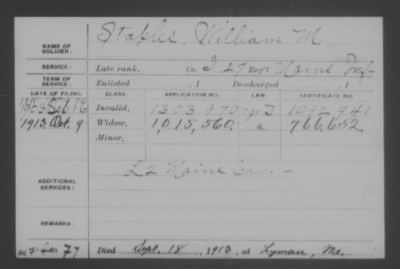 NAME OF SOLDIER: Staples, William M.
SERVICE: Late rank, Co. I 27 Reg't Maine Inf.
TERM OF SERVICE: Enlisted , 1 Discharged , 1
DATE OF FILING. CLASS. APPLICATION NO. LAW. CERTIFICATE NO.
1903 Feb. 16 Invalid, 1303973 1092941
1913 Oct. 9 Widow, 1,015,560 766,652
Minor,
ADDITIONAL SERVICES: L 2 Maine Cav.
REMARKS:
77 Died Sept. 18, 1913, at Lyman, Me.